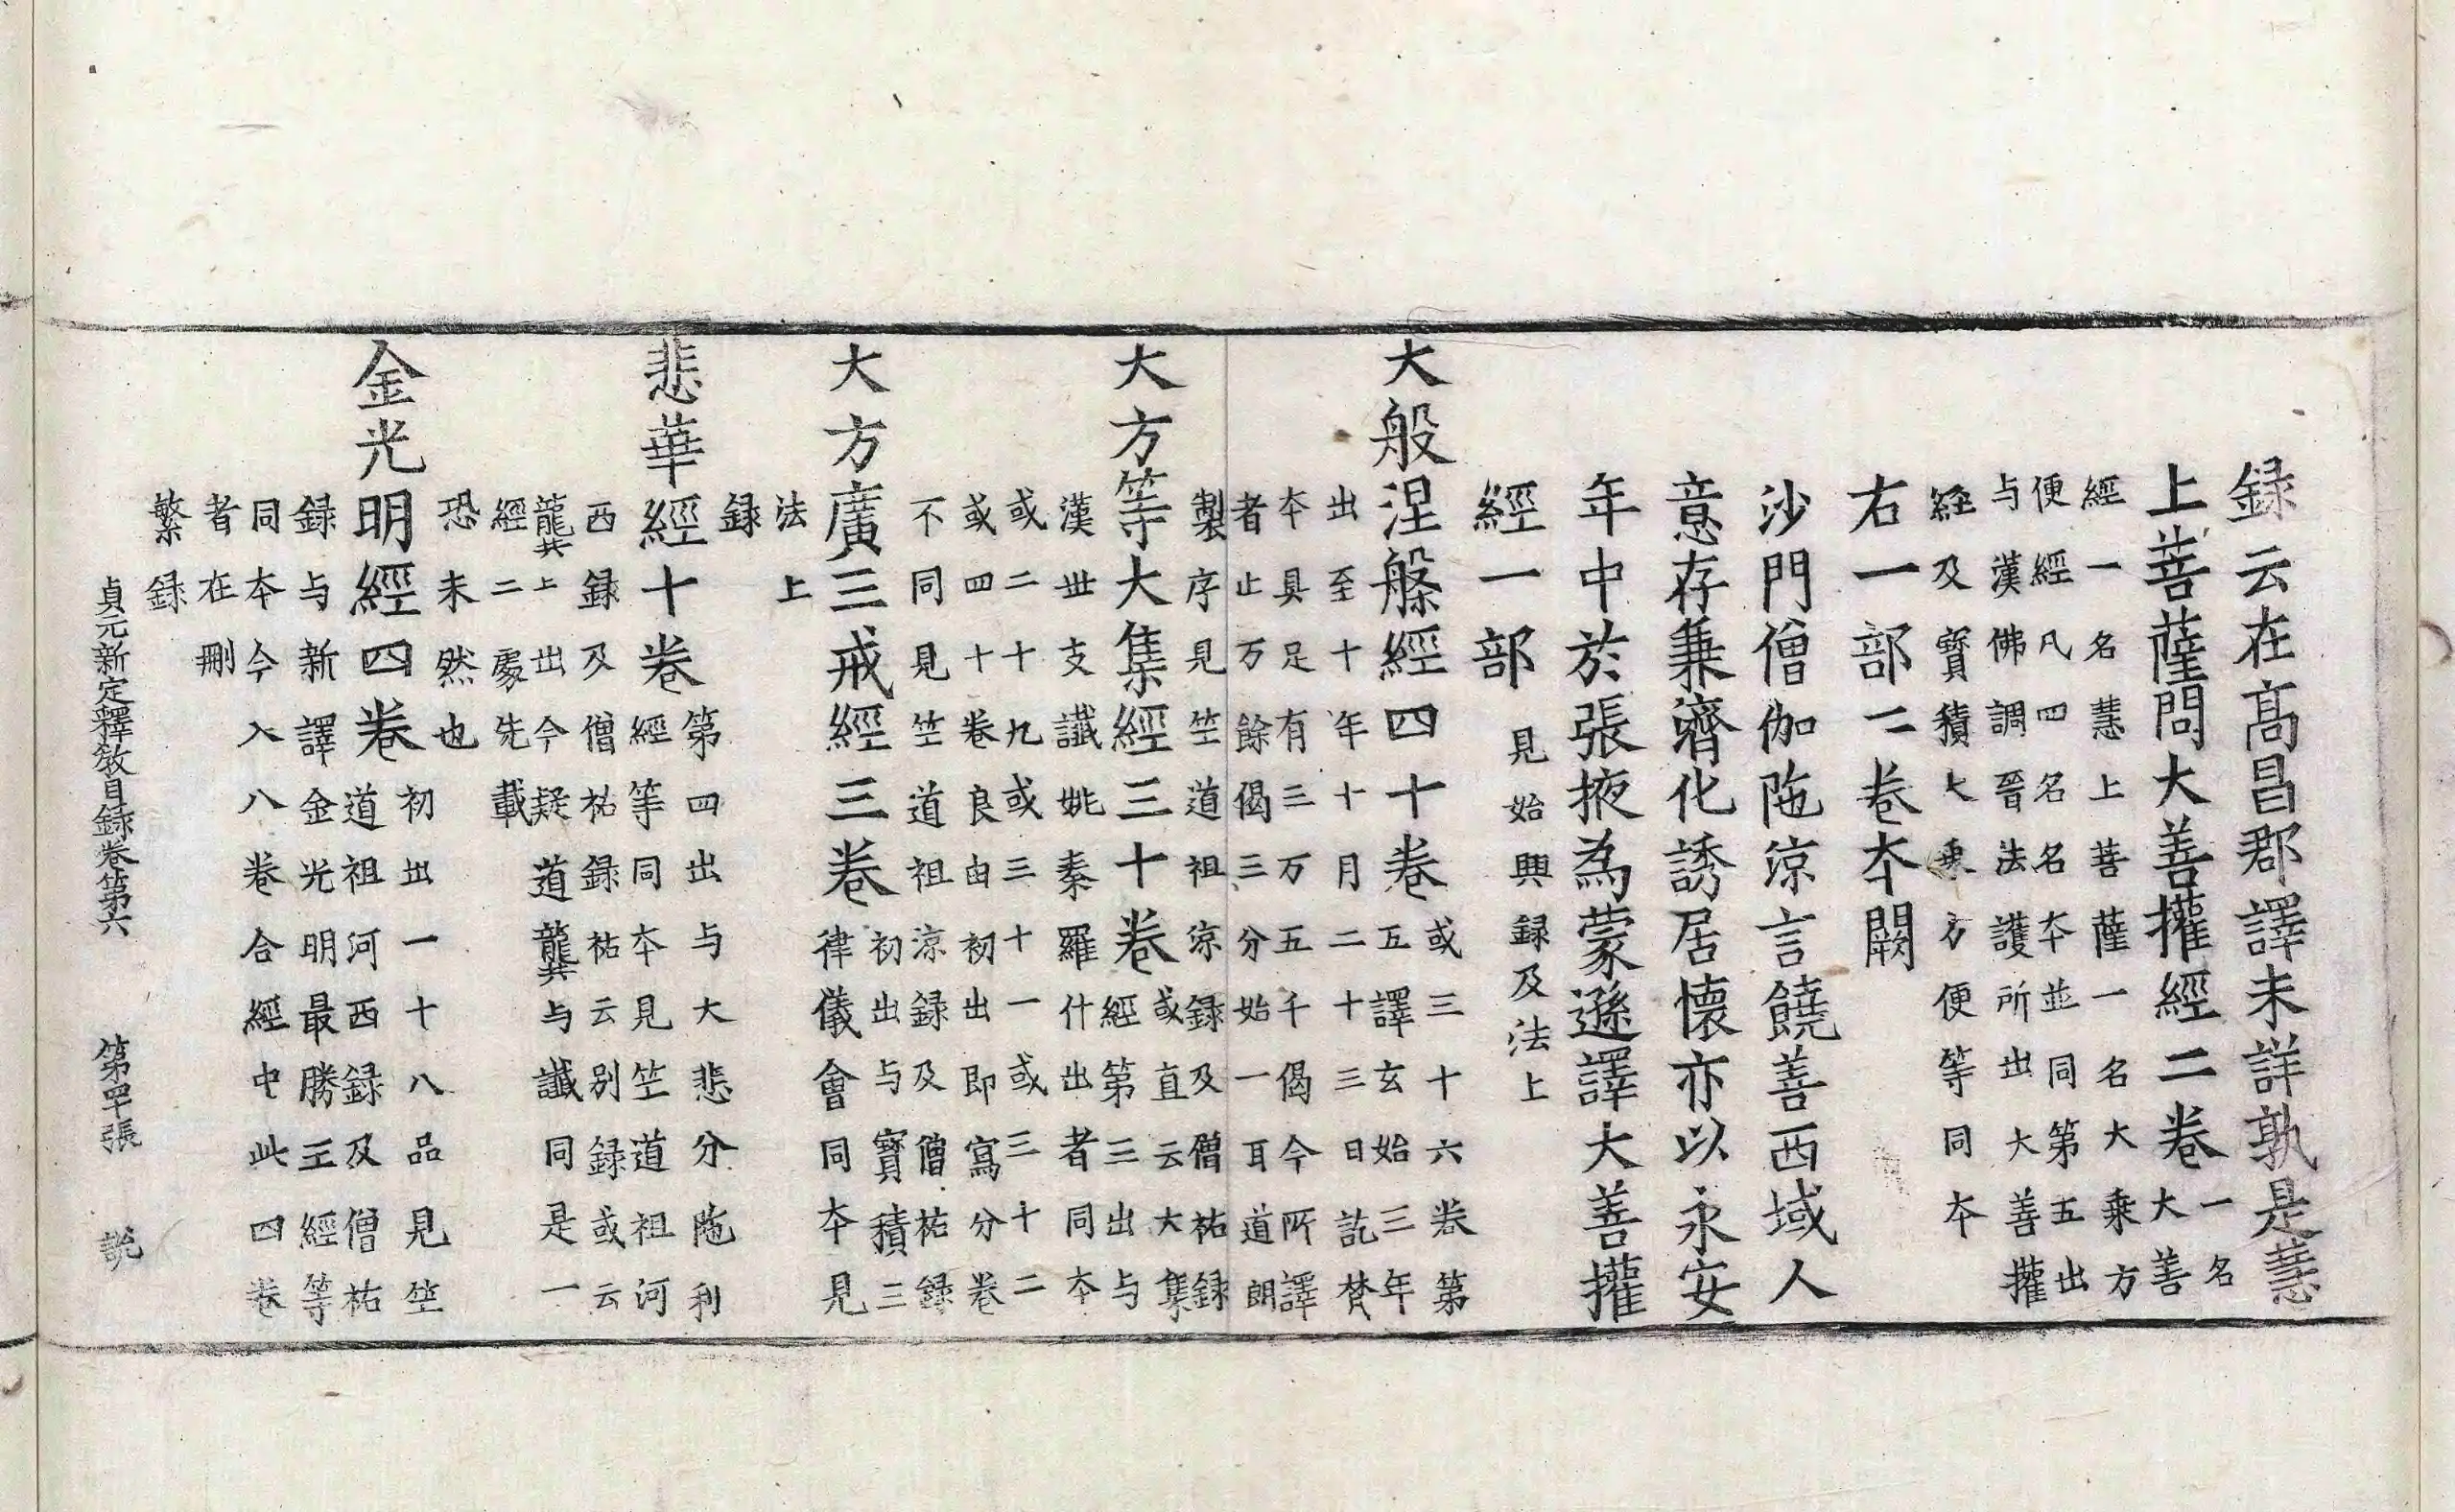 録云在高昌郡譯未詳孰是慧
上菩薩問大善攉經二卷一名
大善
經一名慧上菩薩一名大乗方
便經凡四名名夲並同第五出
与漢佛調晉法護所出大善攉
經及寳積大乗方便等同夲
右一部二卷夲闕
沙門僧伽陁涼言饒善西域人
意存兼濟化誘居懷亦以永安
年中於張掖為蒙遜譯大善攉
經一部見始興録及法上
大般涅槃經四十卷或三十六卷第
五譯玄始三年
出至十年十月二十三日訖梵
夲具足有三万五千偈今所譯
者止万餘偈三分始一耳道朗
製序見竺道祖涼録及僧祐録
大方等大集經三十卷或直云大集
經第三出与
漢丗支讖姚秦羅什出者同夲
或二十九或三十一或三十二
或四十卷良由初出即寫分卷
不同見竺道祖涼録及僧祐録
大方廣三戒經三卷初出与寳積三
律儀會同夲見
法上
録
悲華經十卷第四出与大悲分陁利
經等同夲見竺道祖河
西録及僧祐録祐云别録或云
龔上出今疑道龔与讖同是一
經二處先載
恐未然也
金光明經四卷初出一十八品見竺
道祖河西録及僧祐
録与新譯金光明最勝王經等
同夲今入八卷合經中此四卷
者在刪
繁録
貞元新定釋教目録卷第六 第罕張 説